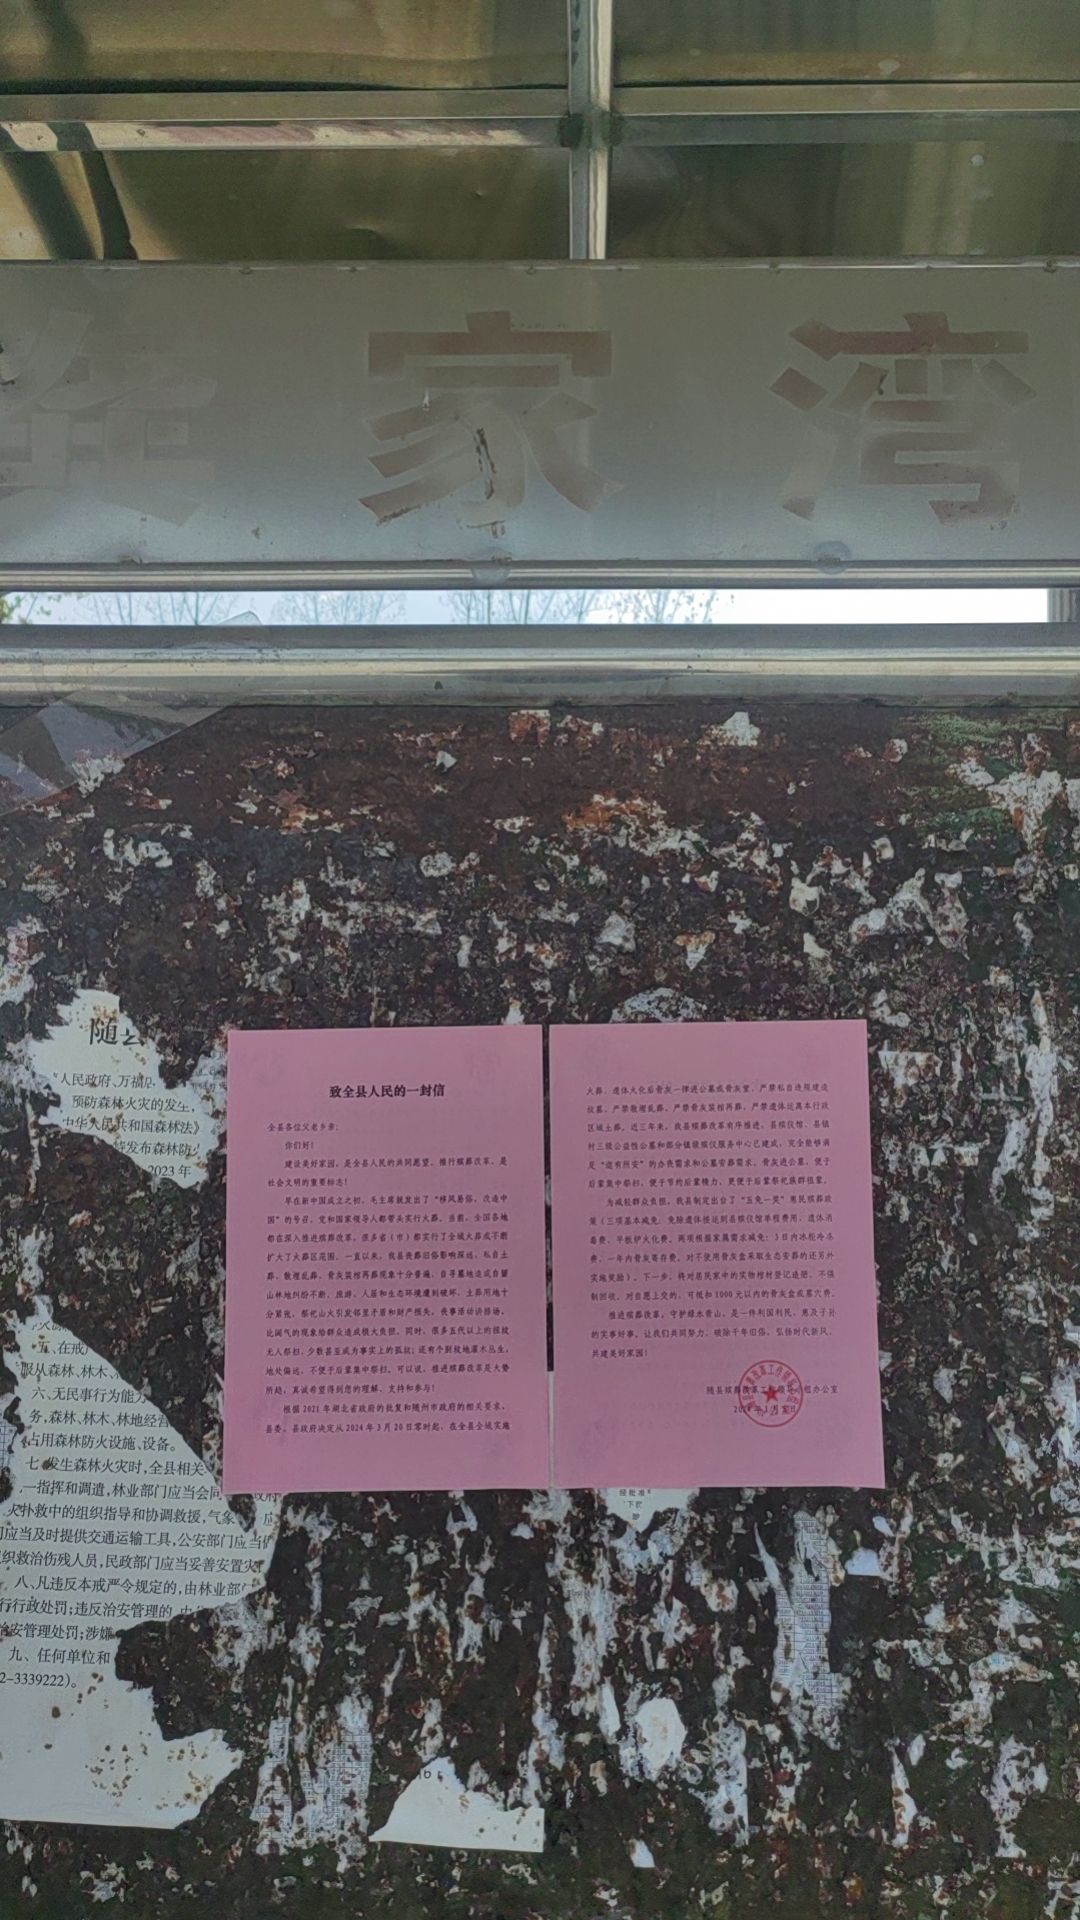 家湾
随县
"人民政府、万福
预防森林火灾的发生,
中华人民共和国森林法》
特发布森林防火
2023年
五、在戒
服从森林、林木、
六、无民事行为能力
务,森林、林木、林地经营
占用森林防火设施、设备。
七、发生森林火灾时,全县相关
一指挥和调遣,林业部门应当会同
火扑救中的组织指导和协调救援,气象
门应当及时提供交通运输工具,公安部门应当
组织救治伤残人员,民政部门应当妥善安置灾
八、凡违反本戒严令规定的,由林业部门
行行政处罚;违反治安管理的,由
治安管理处罚;涉嫌
九、任何单位和
2-3339222)。
致全县人民的一封信
全县各位父老乡亲:
你们好!
建设美好家园,是全县人民的共同愿望。推行殡葬改革,是
社会文明的重要标志!
早在新中国成立之初,毛主席就发出了“移风易俗,改造中
国”的号召,党和国家领导人都带头实行火葬。当前,全国各地
都在深入推进殡葬改革,很多省(市)都实行了全域火葬或不断
扩大了火葬区范围。一直以来,我县丧葬旧俗影响深远,私自土
葬、散埋乱葬、骨灰装棺再葬现象十分普遍,自寻墓地造成自留
山林地纠纷不断,旅游、人居和生态环境遭到破坏,土葬用地十
分紧张。祭祀山火引发邻里矛盾和财产损失。丧事活动讲排场、
比阔气的现象给群众造成极大负担。同时,很多五代以上的祖坟
无人祭扫,少数甚至成为事实上的孤坟;还有个别坟地灌木丛生,
地处偏远,不便于后辈集中祭扫。可以说,推进殡葬改革是大势
所趋,真诚希望得到您的理解、支持和参与!
根据2021年湖北省政府的批复和随州市政府的相关要求,
县委、县政府决定从2024年3月20日零时起,在全县全域实施
火葬,遗体火化后骨灰一律进公墓或骨灰堂,严禁私自违规建造
坟墓、严禁散埋乱葬、严禁骨灰装棺再葬、严禁遗体运离本行政
区域土葬。近三年来,我县殡葬改革有序推进,县殡仪馆、县镇
村三级公益性公墓和部分镇级殡仪服务中心已建成,完全能够满
足“逝有所安”的办丧需求和公墓安葬需求。骨灰进公墓,便于
后辈集中祭扫,便于节约后辈精力,更便于后辈祭祀族群祖辈。
为减轻群众负担,我县制定出台了“五免一奖”惠民殡葬政
策(三项基本减免,免除遗体接运到县殡仪馆单程费用、遗体消
毒费、平板炉火化费。两项根据家属需求减免:3日内冰棺冷冻
费、一年内骨灰寄存费。对不使用骨灰盒采取生态安葬的还另外
实施奖励)。下一步,将对居民家中的实物棺材登记造册,不强
制回收。对自愿上交的,可抵扣1000元以内的骨灰盒或墓穴费。
推进殡葬改革,守护绿水青山,是一件利国利民、惠及子孙
的实事好事。让我们共同努力,破除千年旧俗,弘扬时代新风,
共建美好家园!
随县殡葬改革工作领导小组办公室